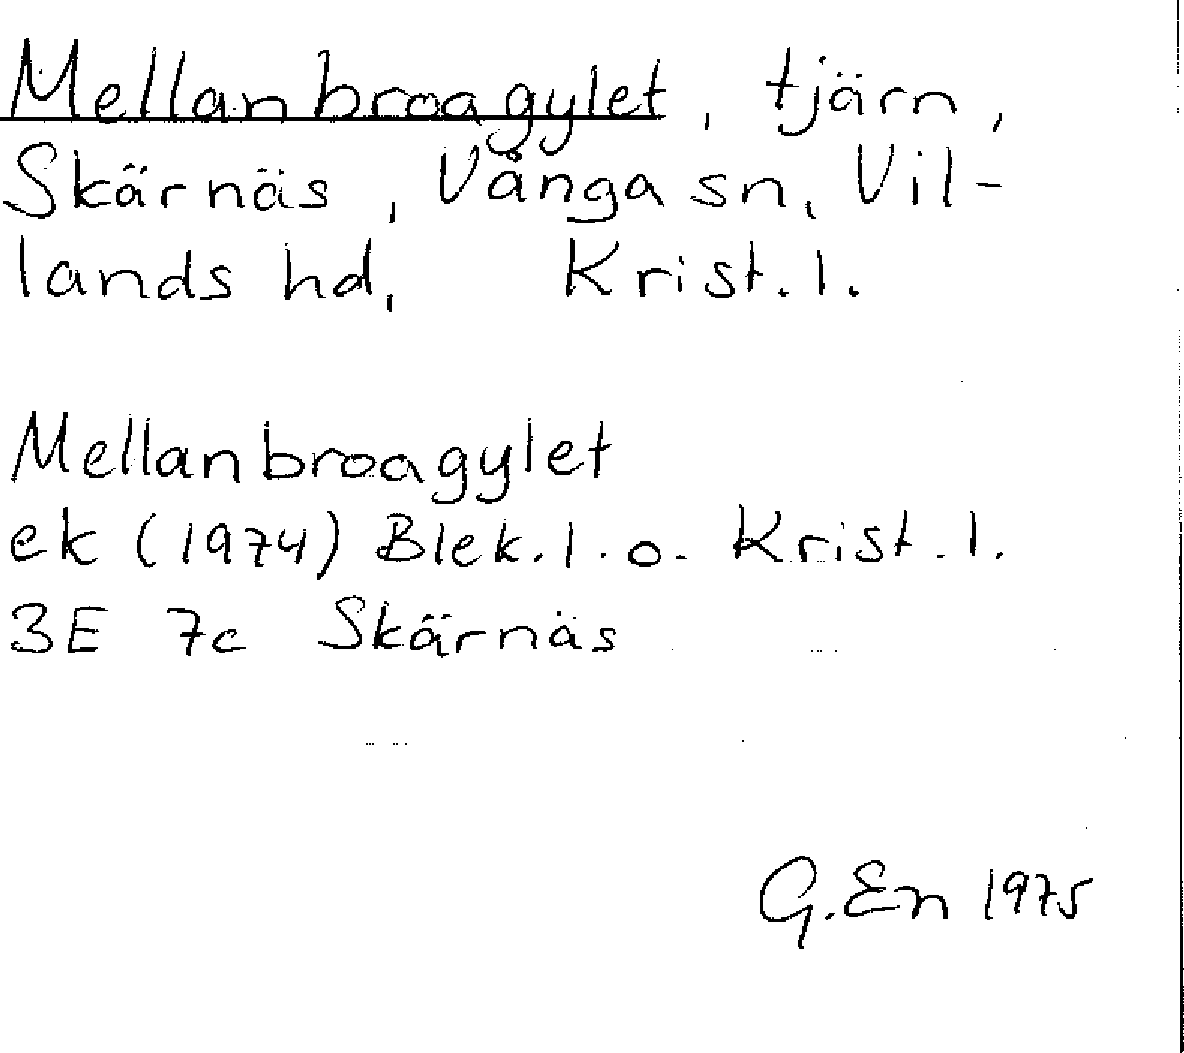 Mellanbroagylet, tjärn,
Skärnäs, Vånga sn, Vil-
lands hd, Krist. l.
Mellanbroagylet
ek (1974) Blek. l. o. Krist. l.
3E 7c Skärnäs
G. En 1975